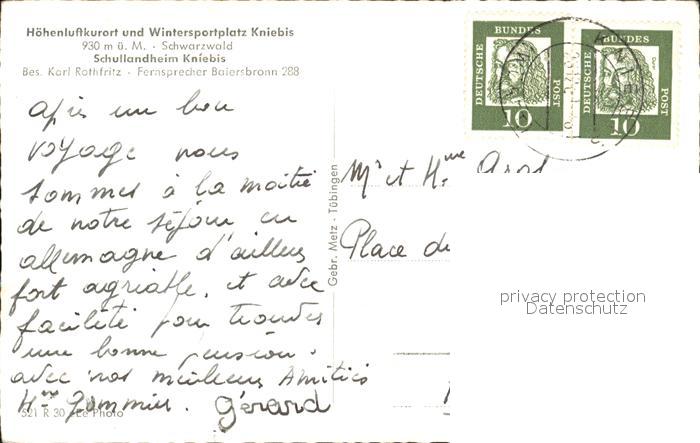 Höhenluftkurort und Wintersportplatz Kniebis
930 m ü. M. · Schwarzwald
Schullandheim Kniebis
Bes. Karl Rothfritz · Fernsprecher Baiersbronn 288
après un bon
voyage nous
sommes à la moitié
de notre séjour en
allemagne d'ailleurs
fort agréable, et avec
facilité pour trouver
une bonne pension.
avec nos meilleurs Amitiés
Gérard
521 R 30 Le Photo
Gebr. Metz · Tübingen
DEUTSCHE BUNDES POST
10
DEUTSCHE BUNDES POST
10
Mr et Mme
Place de
privacy protection
Datenschutz